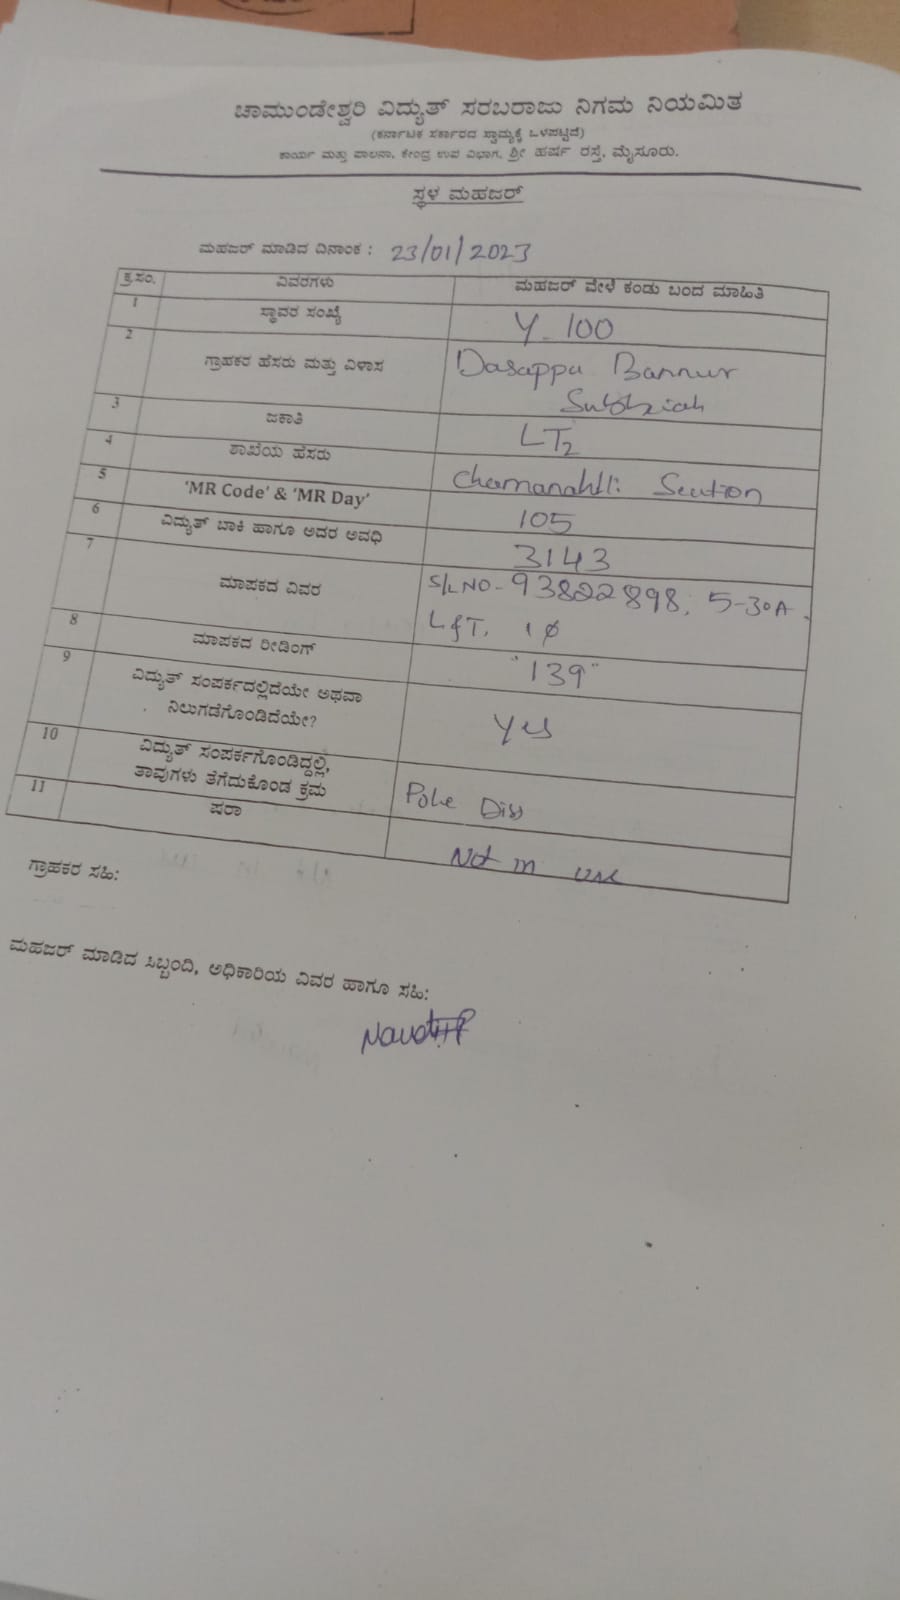 ಚಾಮುಂಡೇಶ್ವರಿ ವಿದ್ಯುತ್ ಸರಬರಾಜು ನಿಗಮ ನಿಯಮಿತ
(ಕರ್ನಾಟಕ ಸರ್ಕಾರದ ಸ್ವಾಮ್ಯಕ್ಕೆ ಒಳಪಟ್ಟಿದೆ)
ಕಾರ್ಯ ಮತ್ತು ಪಾಲನಾ, ಕೇಂದ್ರ ಉಪ ವಿಭಾಗ, ಶ್ರೀ ಹರ್ಷ ರಸ್ತೆ, ಮೈಸೂರು.
ಸ್ಥಳ ಮಹಜರ್
ಮಹಜರ್ ಮಾಡಿದ ದಿನಾಂಕ : 23/01/2023
ಕ್ರ.ಸಂ. ವಿವರಗಳು ಮಹಜರ್ ವೇಳೆ ಕಂಡು ಬಂದ ಮಾಹಿತಿ
1 ಸ್ಥಾವರ ಸಂಖ್ಯೆ Y-100
2 ಗ್ರಾಹಕರ ಹೆಸರು ಮತ್ತು ವಿಳಾಸ Dasappa Bannur
Subbiah
3 ಜಕಾತಿ LT2
4 ಶಾಖೆಯ ಹೆಸರು Section
5 'MR Code' & 'MR Day' 105
6 ವಿದ್ಯುತ್ ಬಾಕಿ ಹಾಗೂ ಅದರ ಅವಧಿ 3143
7 ಮಾಪಕದ ವಿವರ S/L NO-93822898, 5-30A
L&T, 1φ
8 ಮಾಪಕದ ರೀಡಿಂಗ್ "139"
9 ವಿದ್ಯುತ್ ಸಂಪರ್ಕದಲ್ಲಿದೆಯೇ ಅಥವಾ
ನಿಲುಗಡೆಗೊಂಡಿದೆಯೇ? Yes
10 ವಿದ್ಯುತ್ ಸಂಪರ್ಕಗೊಂಡಿದ್ದಲ್ಲಿ,
ತಾವುಗಳು ತೆಗೆದುಕೊಂಡ ಕ್ರಮ Pole Diss
11 ಷರಾ Not in use
ಗ್ರಾಹಕರ ಸಹಿ:
ಮಹಜರ್ ಮಾಡಿದ ಸಿಬ್ಬಂದಿ, ಅಧಿಕಾರಿಯ ವಿವರ ಹಾಗೂ ಸಹಿ: